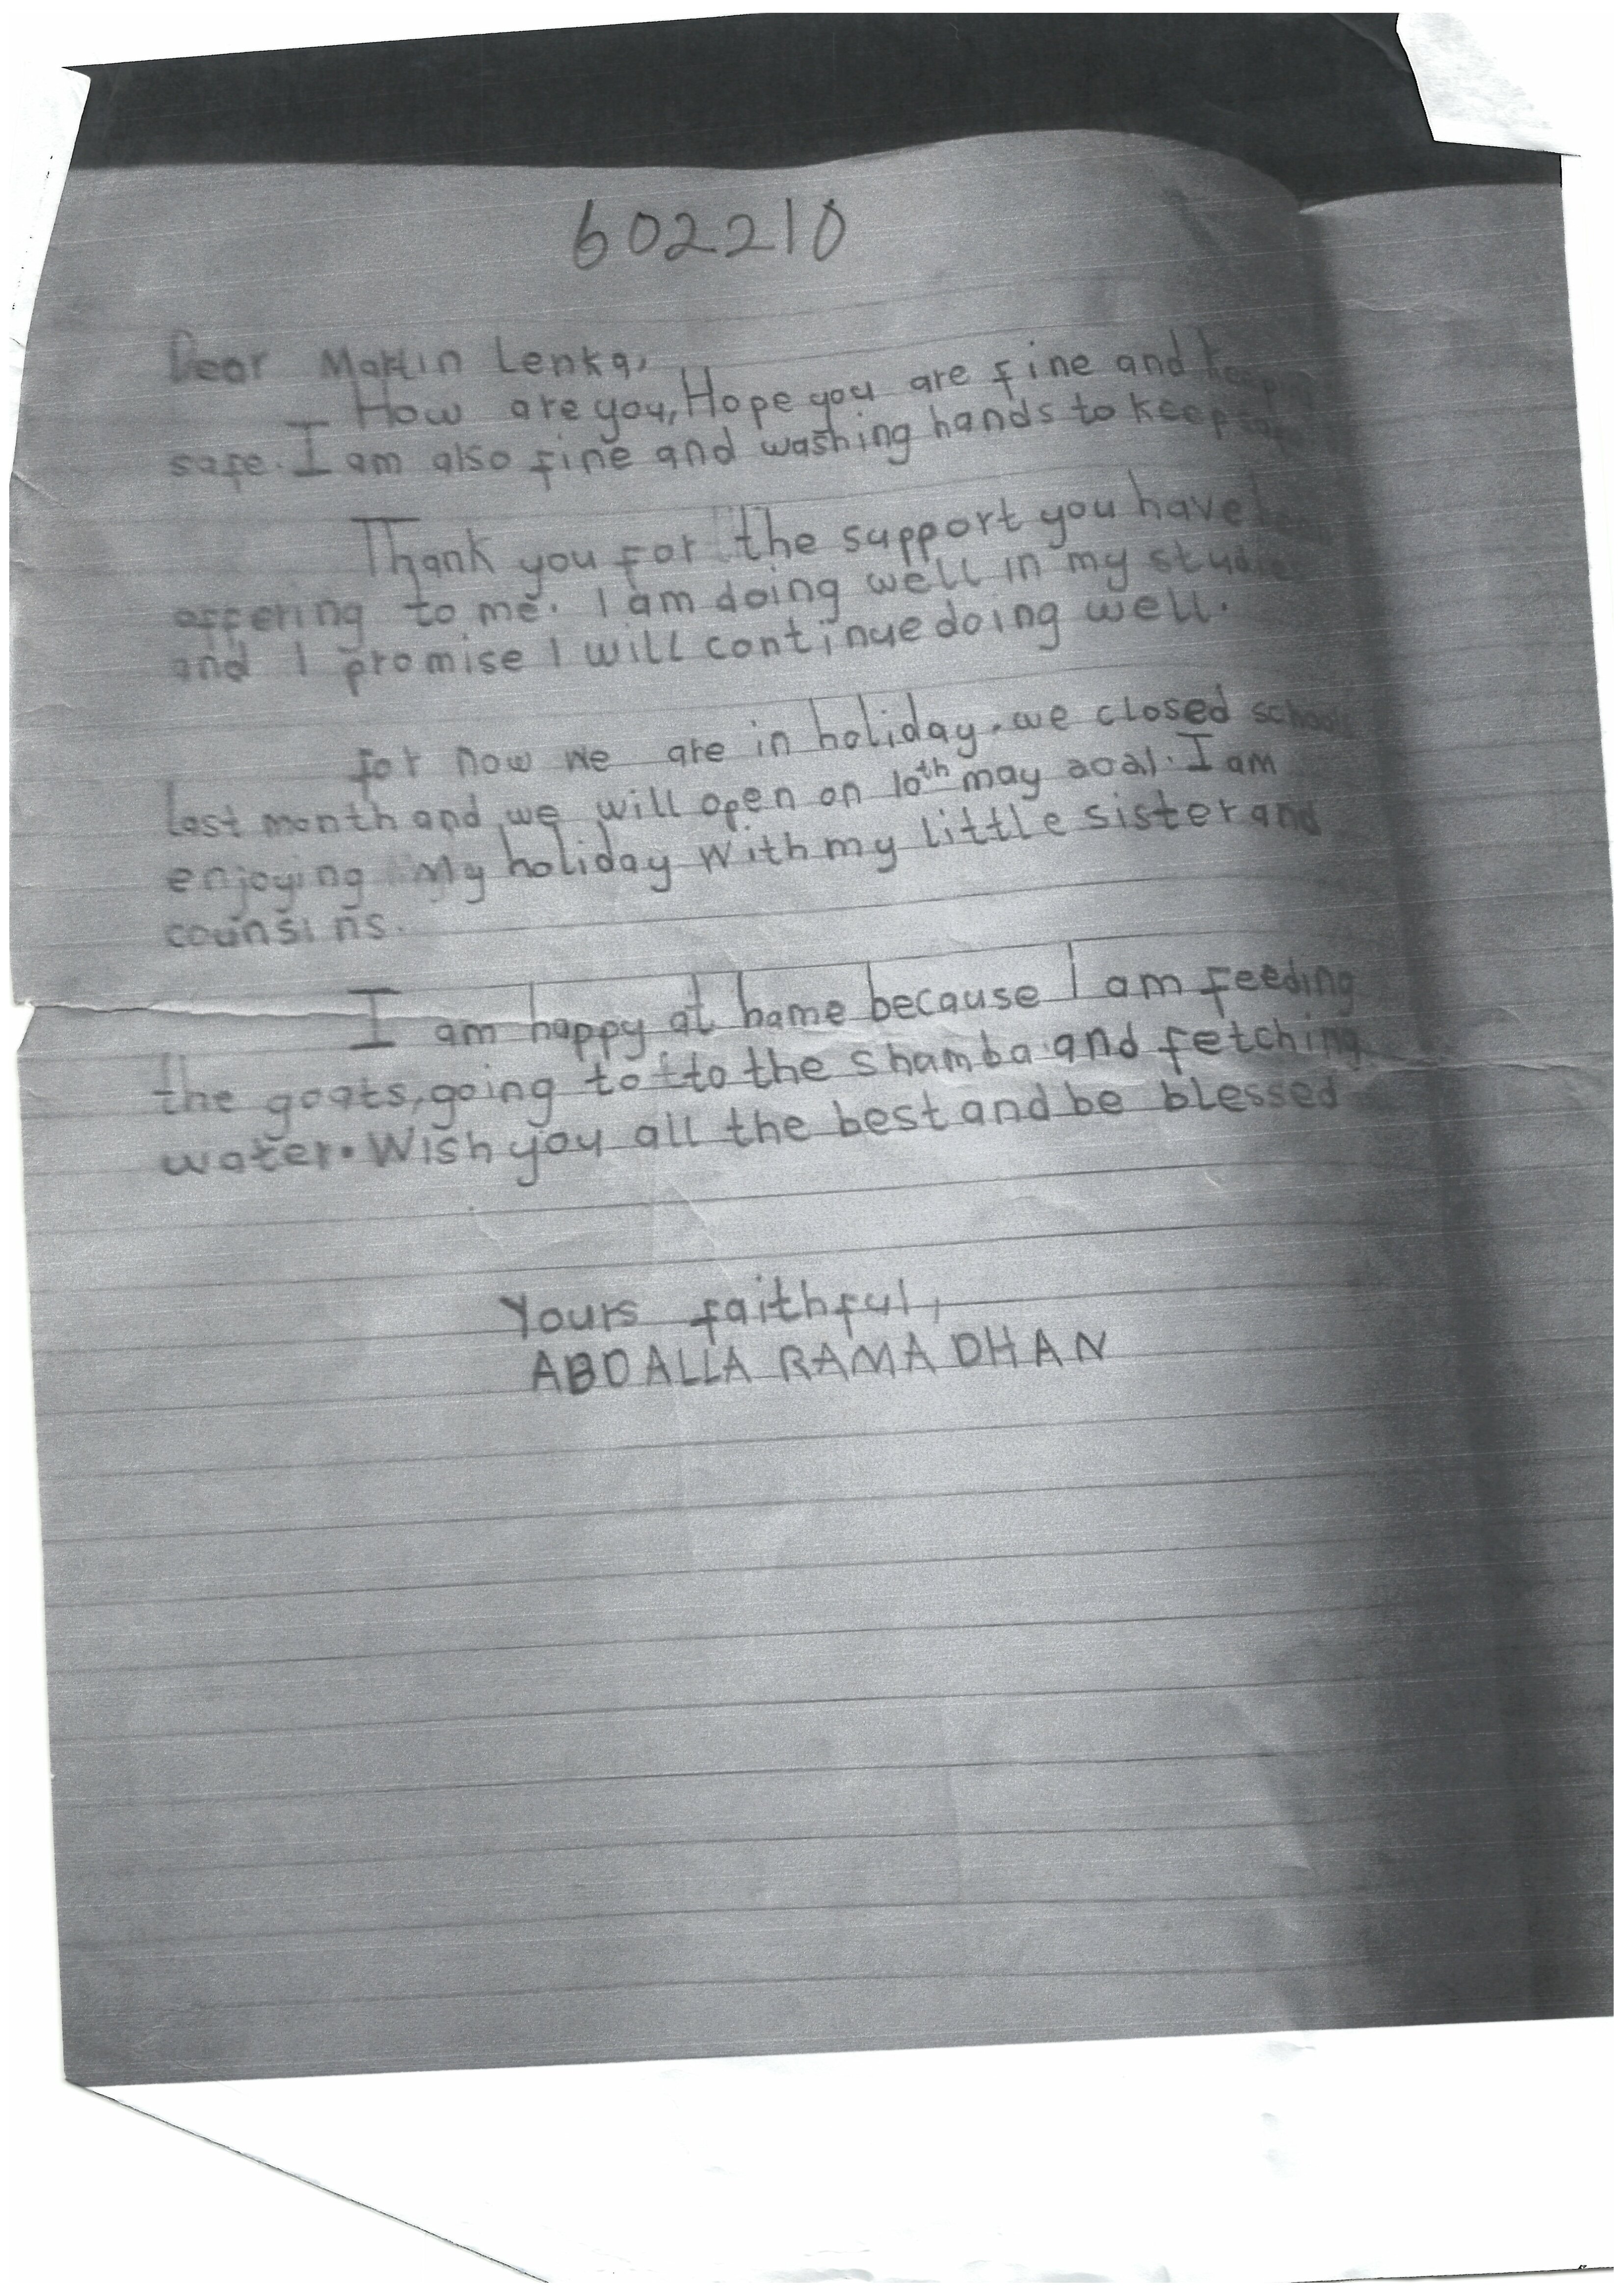 602210
Dear Martin Lenka,
How are you, Hope you are fine and
safe. I am also fine and washing hands to keep
Thank you for the support you have
offering to me. I am doing well in my
and I promise I will continue doing well.
for now we are in holiday. we closed
last month and we will open on 10th may 2021. I am
enjoying My holiday with my little sister and
counsins.
I am happy at home because I am feeding
the goats, going to to the shamba and fetching
water. Wish you all the best and be blessed
Yours faithful,
ABDALLA RAMADHAN